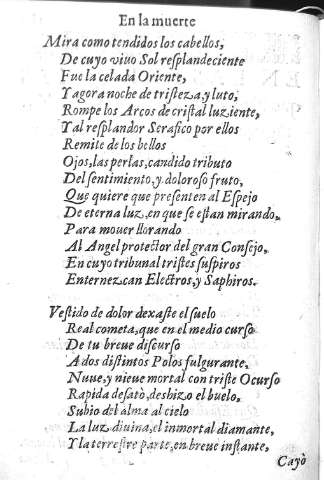 En la muerte
Mira como tendidos los cabellos,
De cuyo viuo Sol resplandeciente
Fue la celada Oriente,
Y agora noche de tristeza, y luto,
Rompe los Arcos de cristal luziente,
Y al resplandor Serafico por ellos
Remite de los bellos
Ojos, las perlas, candido tributo
Del sentimiento, y doloroso fruto,
Que quiere que presenten al Espejo
De eterna luz, en que se estan mirando,
Para mouer llorando
Al Angel protector del gran Consejo,
En cuyo tribunal tristes suspiros
Enternezcan Electros, y Saphiros.
Vestido de dolor dexaste el suelo
Real cometa, que en el medio curso
De tu breue discurso
A dos distintos Polos fulgurante,
Nuue, y nieue mortal con triste Ocurso
Rapida desatò, deshizo el buelo,
Subio del alma al cielo
La luz diuina, el inmortal diamante,
Y la terrestre parte, en breue instante,
Cayò